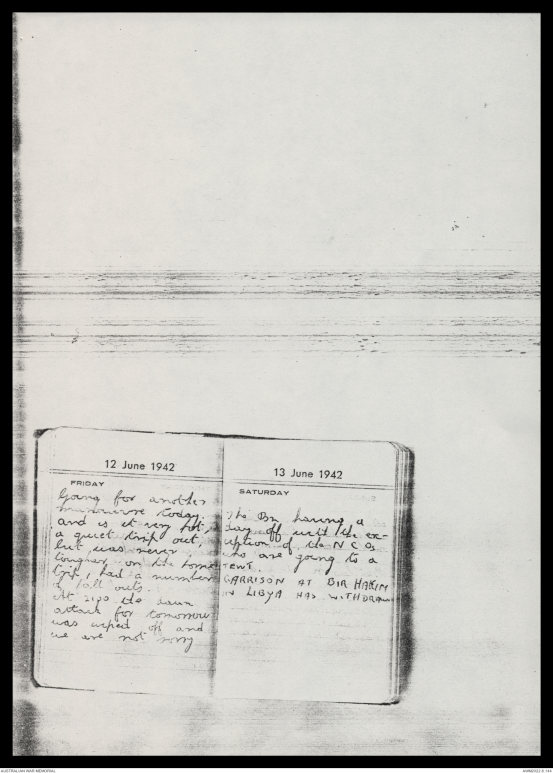 12 June 1942
FRIDAY
Going for another
manouevre today.
and is it very hot,
a quiet trip out,
but was never
longer, on the home
trip, had a number
of fall outs.
At 2130 the dawn
attack for tomorrow
was wiped off and
we are not sorry
13 June 1942
SATURDAY
The Bn having a
day off with the ex-
ception of the N C Os
who are going to a
TEWT.
GARRISON AT BIR HAKIM
IN LIBYA HAS WITHDRAWN
AUSTRALIAN WAR MEMORIAL